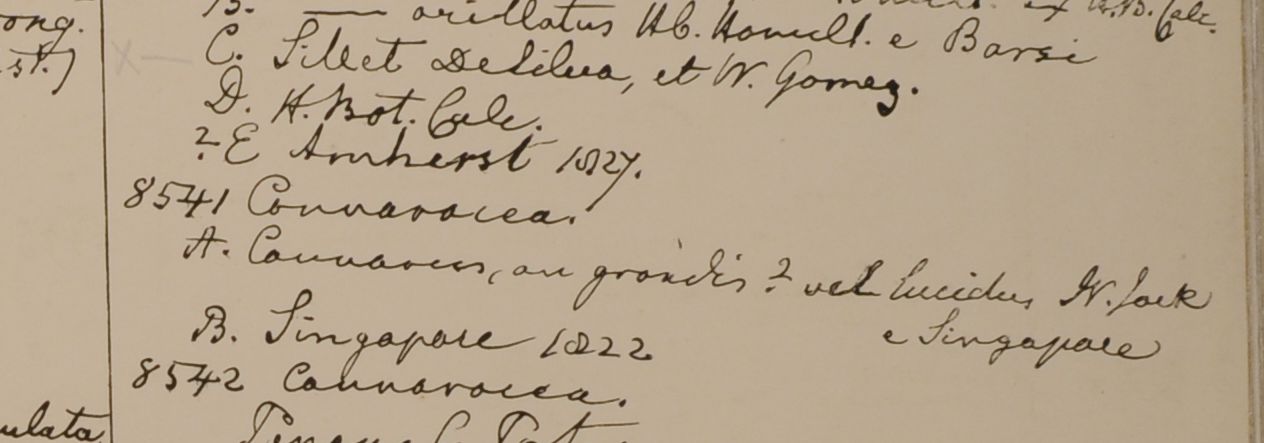 ong.
st.)
ulata
H.B. Calc.
B. — arillatus Hb. Hamilt. e Barsi
C. Sillet DeSilva, et W. Gomez.
D. H. Bot. Calc.
? E Amherst 1827.
8541 Connaracea.
A. Connarus, an grandis? vel lucidus W. Jack
e Singapore
B. Singapore 1822
8542 Connaracea.